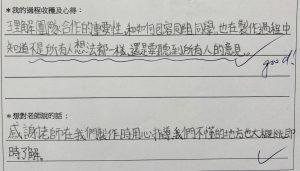 *我的過程收穫及心得：
理解團隊合作的重要性，和如何包容同組同學，也在製作過程中
知道不是所有人想法都一樣，還是要聽到所有人的意見。
good!
*想對老師說的話：
感謝老師在我們製作時用心指導，我們不懂的地方也大概能即
時了解。